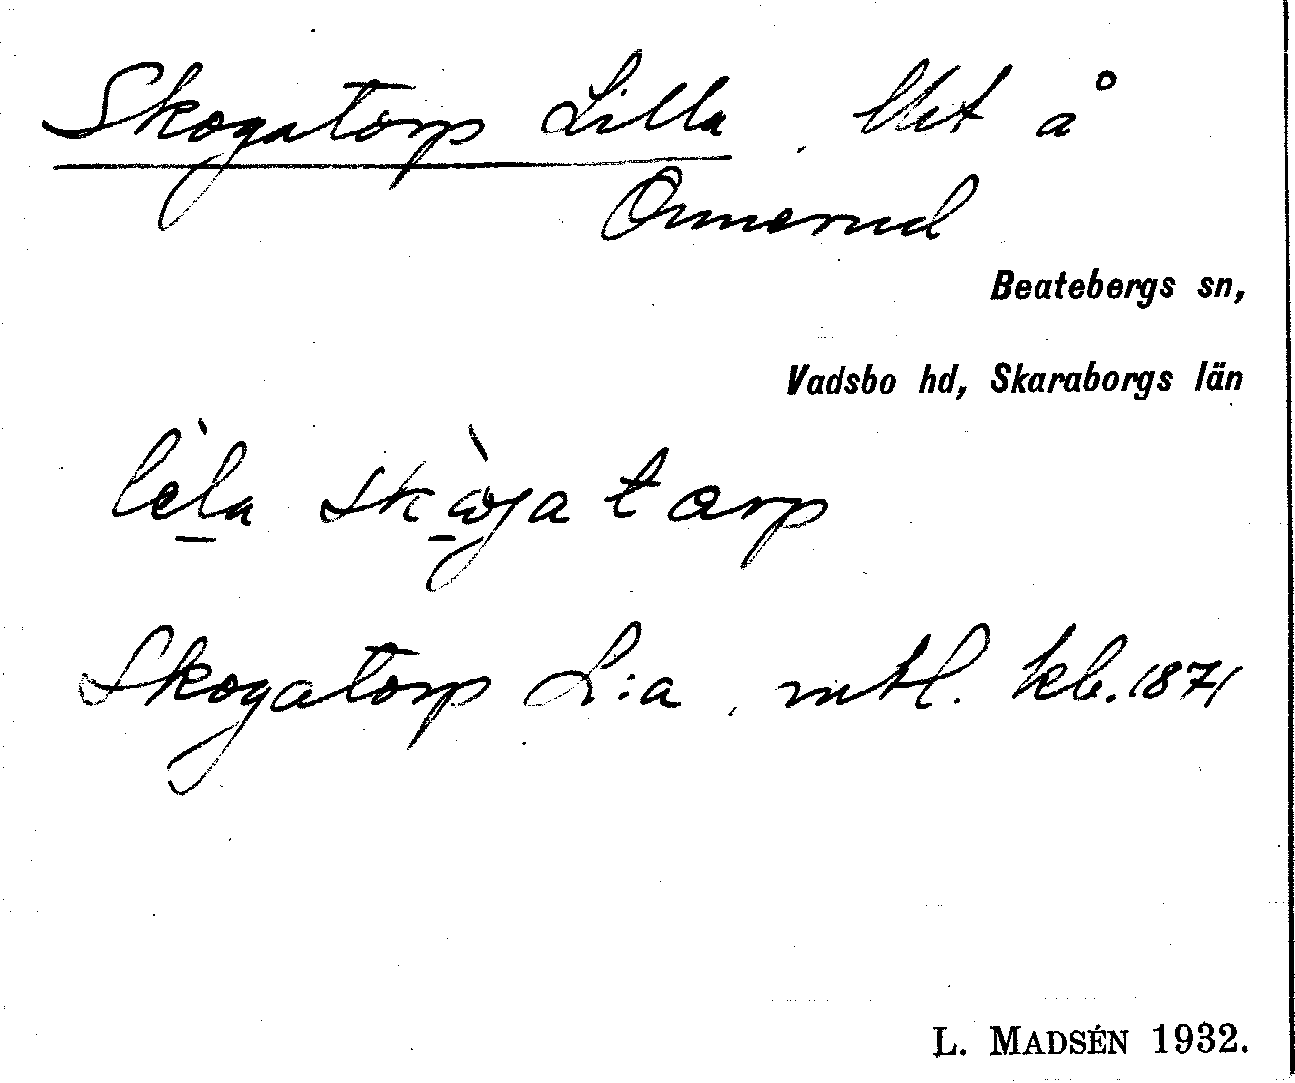 Skogatorp Lilla, lht å
Onnerud
Beatebergs sn,
Vadsbo hd, Skaraborgs län
lèla skògatorp
Skogatorp L:a, mtl. kb. 1871
L. MADSÉN 1932.